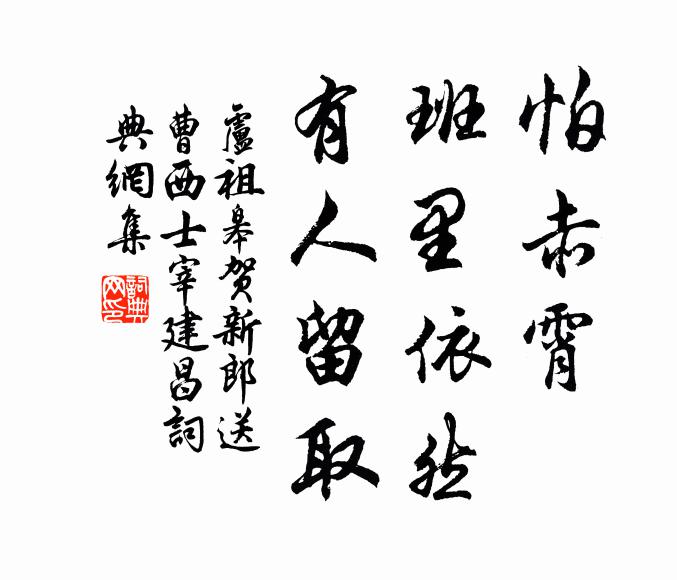 怕赤霄
班里依然
有人留取
盧祖皋賀新郎送
曹西士宰建昌詞
典網集
詞典網印